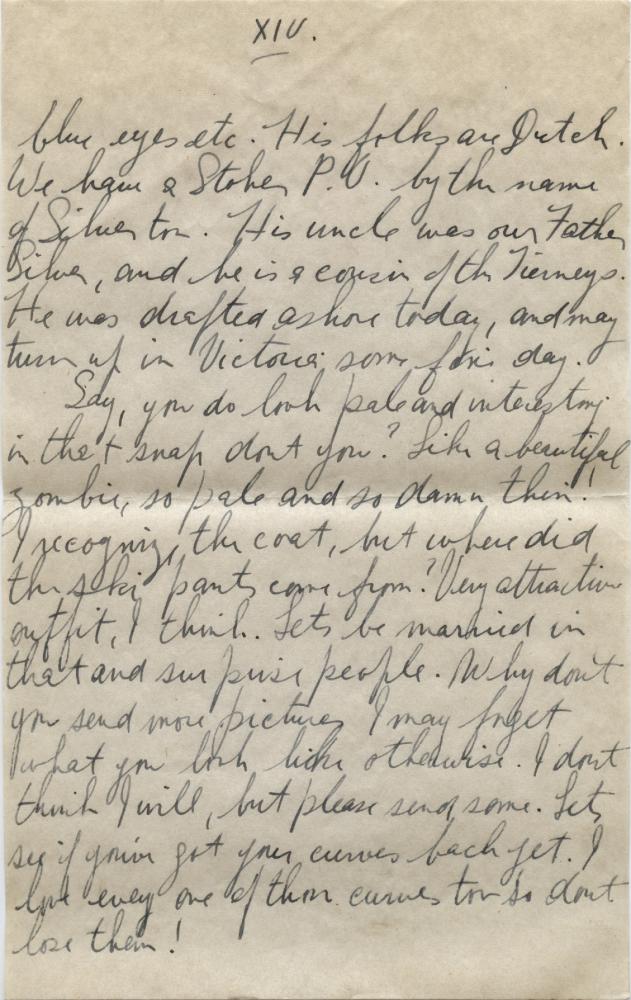 XIV.
blue eyes etc. His folks are Dutch.
We have a Stoker P.O. by the name
of Silverton. His uncle was our Father
Silver, and he is a cousin of the Tierneys.
He was drafted ashore today, and may
turn up in Victoria some fine day.
Say, you do look pale and interesting
in that snap dont you? Like a beautiful
zombie, so pale and so damn thin!
I recognize the coat, but where did
the ski pants come from? Very attractive
outfit, I think. Lets be married in
that and surprise people. Why don't
you send more pictures I may forget
what you look like otherwise. I dont
think I will, but please send some. Lets
see if you've got your curves back yet. I
love every one of them curves too so dont
lose them!